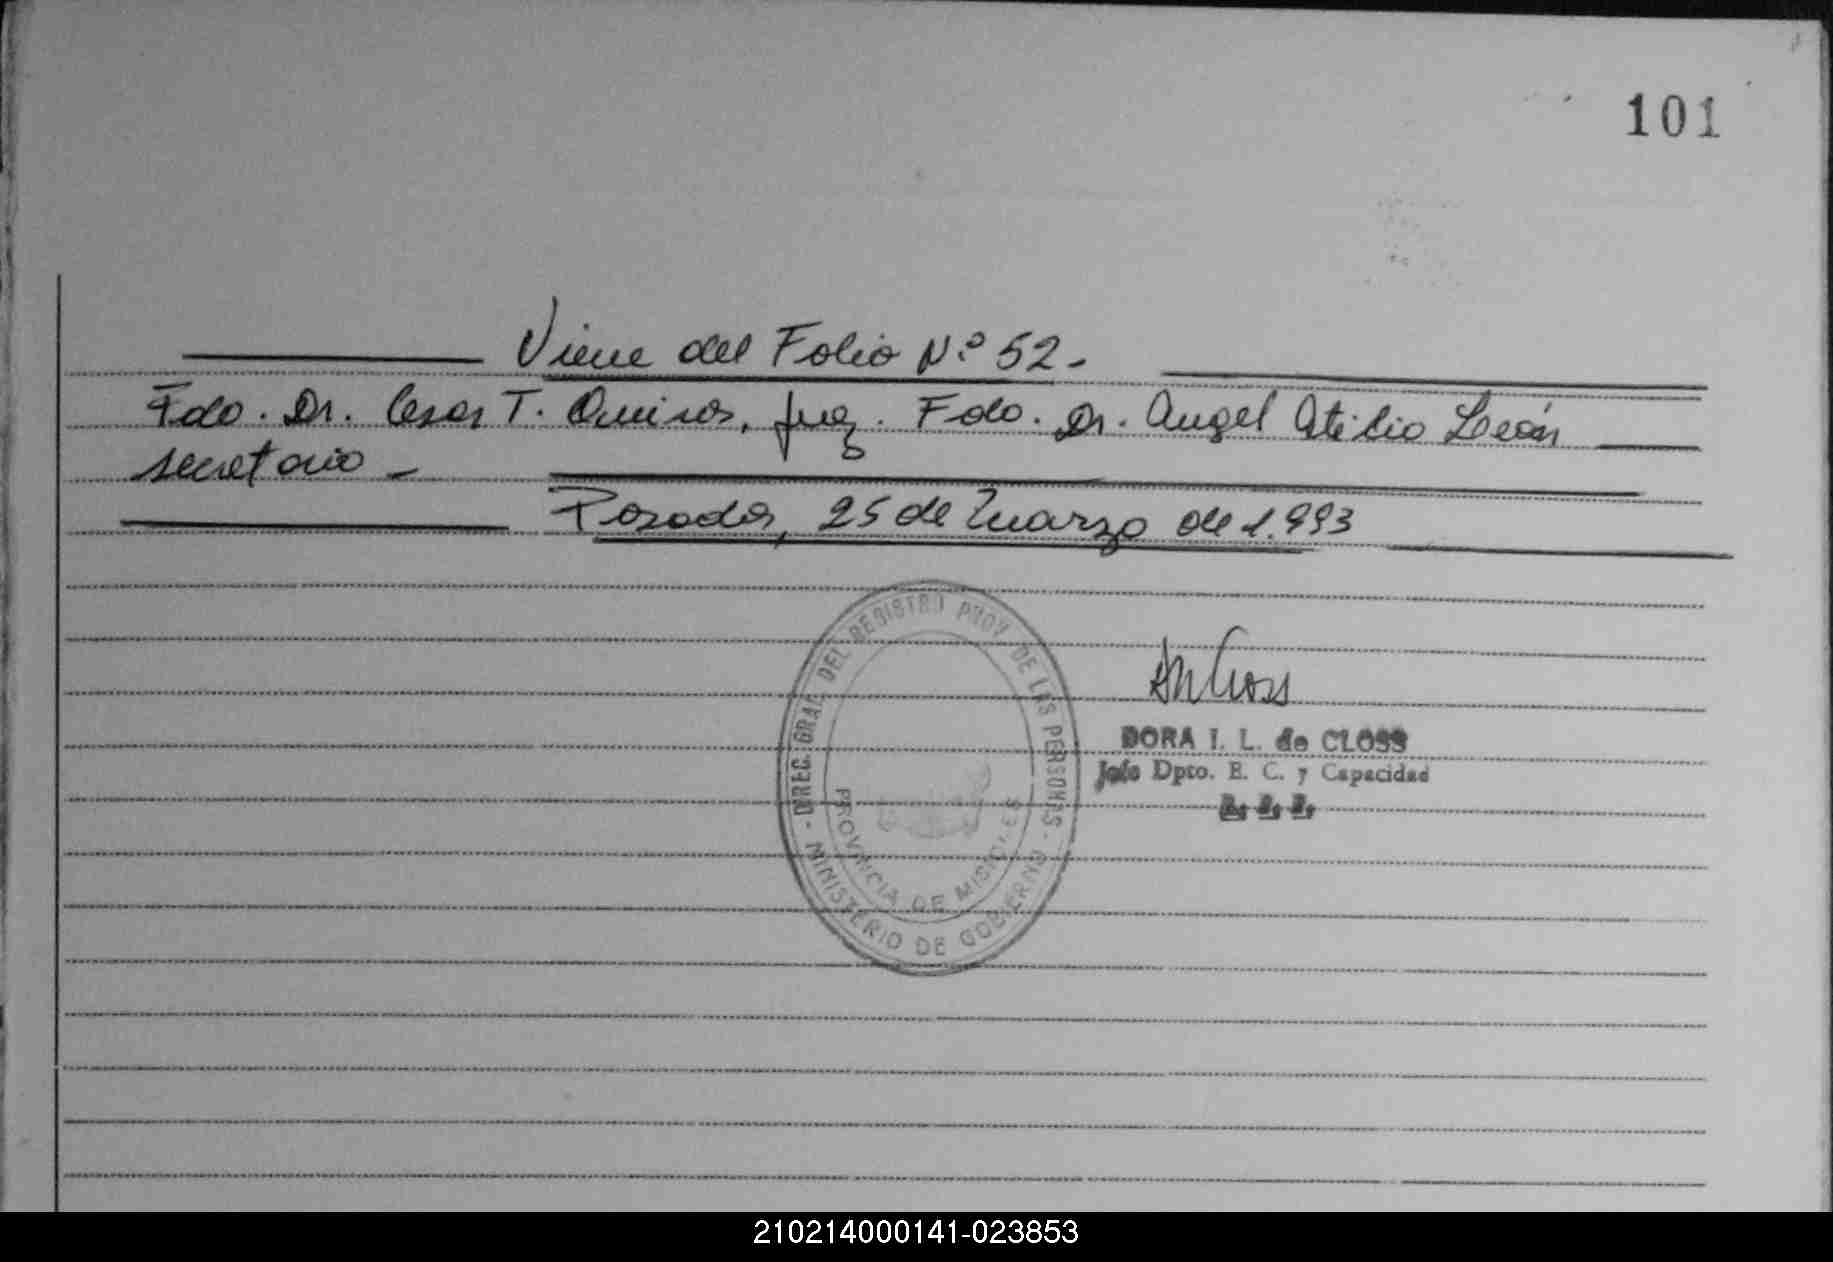 101
Viene del Folio Nº 52-
Fdo. Dr. Cesar T. Quiros, Juez. Fdo. Dr. Angel Atilio León
secretario -
Posadas, 25 de Marzo de 1.993
- DIREC. GRAL. DEL REGISTRO PROV. DE LAS PERSONAS -
MINISTERIO DE GOBIERNO
PROVINCIA DE MISIONES
DORA I. L. de CLOSS
Jefe Dpto. E. C. y Capacidad
210214000141-023853